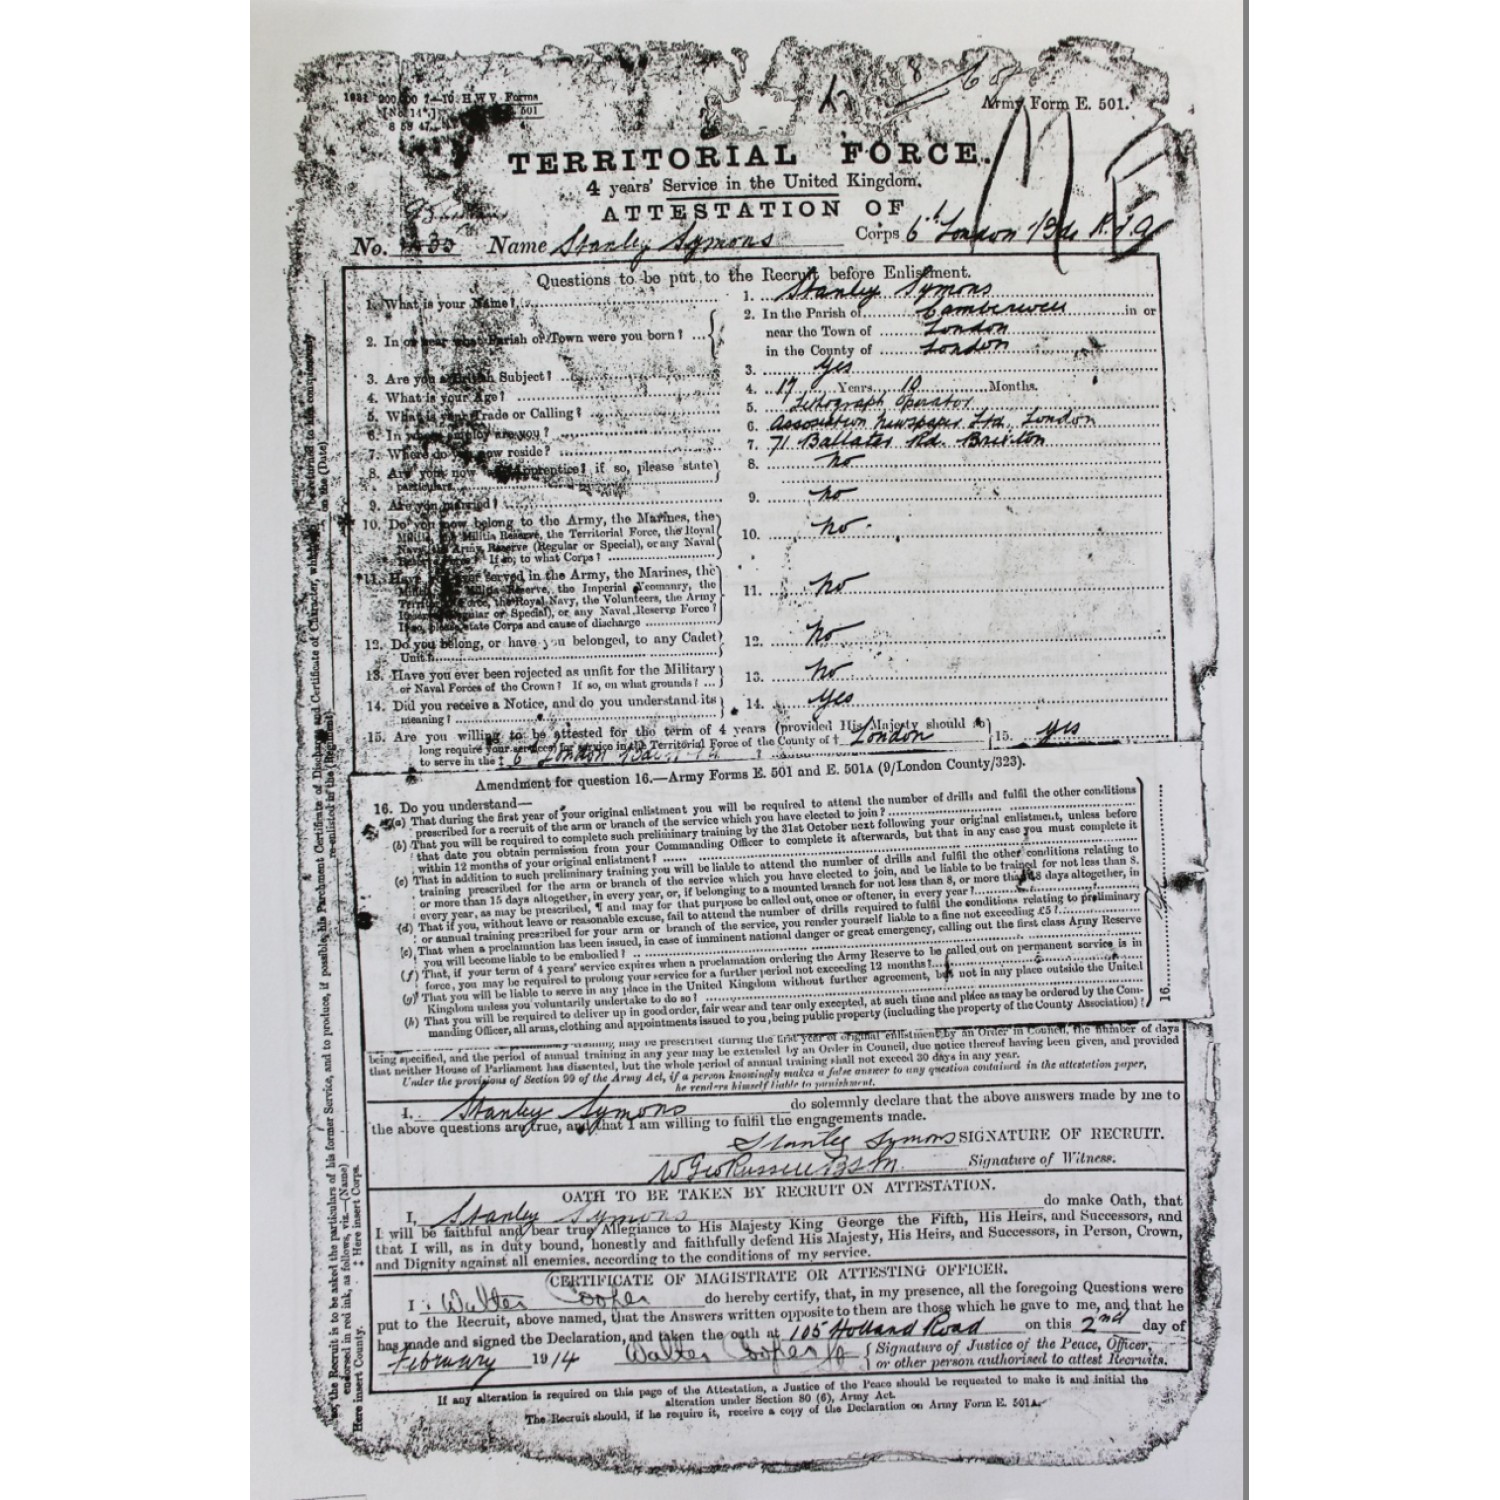 Army Form E. 501.
TERRITORIAL FORCE.
4 years' Service in the United Kingdom.
ATTESTATION OF
No. Name Stanley Symons Corps 6th London Bde R.F.A.
Questions to be put to the Recruit before Enlistment.
1. What is your Name? 1. Stanley Symons
2. In or near what Parish or Town were you born? 2. In the Parish of Camberwell in or
near the Town of London
in the County of London
3. Are you a British Subject? 3. Yes
4. What is your Age? 4. 17 Years 10 Months.
5. What is your Trade or Calling? 5. Lithograph Operator
6. In whose employ are you? 6. Association Newspaper Ltd. London
7. Where do you now reside? 7. 71 Ballater Rd. Brixton
8. Are you now an Apprentice? if so, please state particulars 8. No
9. Are you married? 9. No
10. Do you now belong to the Army, the Marines, the
Militia, the Militia Reserve, the Territorial Force, the Royal
Navy, the Army Reserve (Regular or Special), or any Naval
Reserve Force? If so, to what Corps? 10. No.
11. Have you ever served in the Army, the Marines, the
Militia, the Militia Reserve, the Imperial Yeomanry, the
Territorial Force, the Royal Navy, the Volunteers, the Army
Reserve (Regular or Special), or any Naval Reserve Force?
If so, please state Corps and cause of discharge 11. No
12. Do you belong, or have you belonged, to any Cadet
Unit? 12. No
13. Have you ever been rejected as unfit for the Military
or Naval Forces of the Crown? If so, on what grounds? 13. No
14. Did you receive a Notice, and do you understand its
meaning? 14. Yes
15. Are you willing to be attested for the term of 4 years (provided His Majesty should so
long require your services) for service in the Territorial Force of the County of † London
to serve in the ‡ 6 London Bde 15. Yes
Amendment for question 16.—Army Forms E. 501 and E. 501A (9/London County/323).
16. Do you understand—
(a) That during the first year of your original enlistment you will be required to attend the number of drills and fulfil the other conditions
prescribed for a recruit of the arm or branch of the service which you have elected to join?
(b) That you will be required to complete such preliminary training by the 31st October next following your original enlistment, unless before
that date you obtain permission from your Commanding Officer to complete it afterwards, but that in any case you must complete it
within 12 months of your original enlistment?
(c) That in addition to such preliminary training you will be liable to attend the number of drills and fulfil the other conditions relating to
training prescribed for the arm or branch of the service which you have elected to join, and be liable to be trained for not less than 8,
or more than 15 days altogether, in every year, or, if belonging to a mounted branch for not less than 8, or more than 18 days altogether, in
every year, as may be prescribed, ¶ and may for that purpose be called out, once or oftener, in every year?
(d) That if you, without leave or reasonable excuse, fail to attend the number of drills required to fulfil the conditions relating to preliminary
or annual training prescribed for your arm or branch of the service, you render yourself liable to a fine not exceeding £5?
(e) That when a proclamation has been issued, in case of imminent national danger or great emergency, calling out the first class Army Reserve
you will become liable to be embodied?
(f) That, if your term of 4 years' service expires when a proclamation ordering the Army Reserve to be called out on permanent service is in
force, you may be required to prolong your service for a further period not exceeding 12 months?
(g) That you will be liable to serve in any place in the United Kingdom without further agreement, but not in any place outside the United
Kingdom unless you voluntarily undertake to do so?
(h) That you will be required to deliver up in good order, fair wear and tear only excepted, at such time and place as may be ordered by the Com-
manding Officer, all arms, clothing and appointments issued to you, being public property (including the property of the County Association)? 16.
training may be prescribed during the first year of original enlistment by an Order in Council, the number of days
being specified, and the period of annual training in any year may be extended by an Order in Council, due notice thereof having been given, and provided
that neither House of Parliament has dissented, but the whole period of annual training shall not exceed 30 days in any year.
Under the provisions of Section 99 of the Army Act, if a person knowingly makes a false answer to any question contained in the attestation paper,
he renders himself liable to punishment.
I, Stanley Symons do solemnly declare that the above answers made by me to
the above questions are true, and that I am willing to fulfil the engagements made.
Stanley Symons SIGNATURE OF RECRUIT.
W Geo Russell BSM. Signature of Witness.
OATH TO BE TAKEN BY RECRUIT ON ATTESTATION.
I, Stanley Symons do make Oath, that
I will be faithful and bear true Allegiance to His Majesty King George the Fifth, His Heirs, and Successors, and
that I will, as in duty bound, honestly and faithfully defend His Majesty, His Heirs, and Successors, in Person, Crown,
and Dignity against all enemies, according to the conditions of my service.
CERTIFICATE OF MAGISTRATE OR ATTESTING OFFICER.
I, Walter Cooper do hereby certify, that, in my presence, all the foregoing Questions were
put to the Recruit, above named, that the Answers written opposite to them are those which he gave to me, and that he
has made and signed the Declaration, and taken the oath at 105 Holland Road on this 2nd day of
February 1914 Walter Cooper { Signature of Justice of the Peace, Officer,
or other person authorised to attest Recruits.
If any alteration is required on this page of the Attestation, a Justice of the Peace should be requested to make it and initial the
alteration under Section 80 (6), Army Act.
The Recruit should, if he require it, receive a copy of the Declaration on Army Form E. 501A.
the Recruit is to be asked the particulars of his former Service, and to produce, if possible, his Parchment Certificate of Discharge and Certificate of Character,
endorsed in red ink, as follows, viz.—(Name) re-enlisted in the (Regiment) on the (Date)
Here insert County. ‡ Here insert Corps.